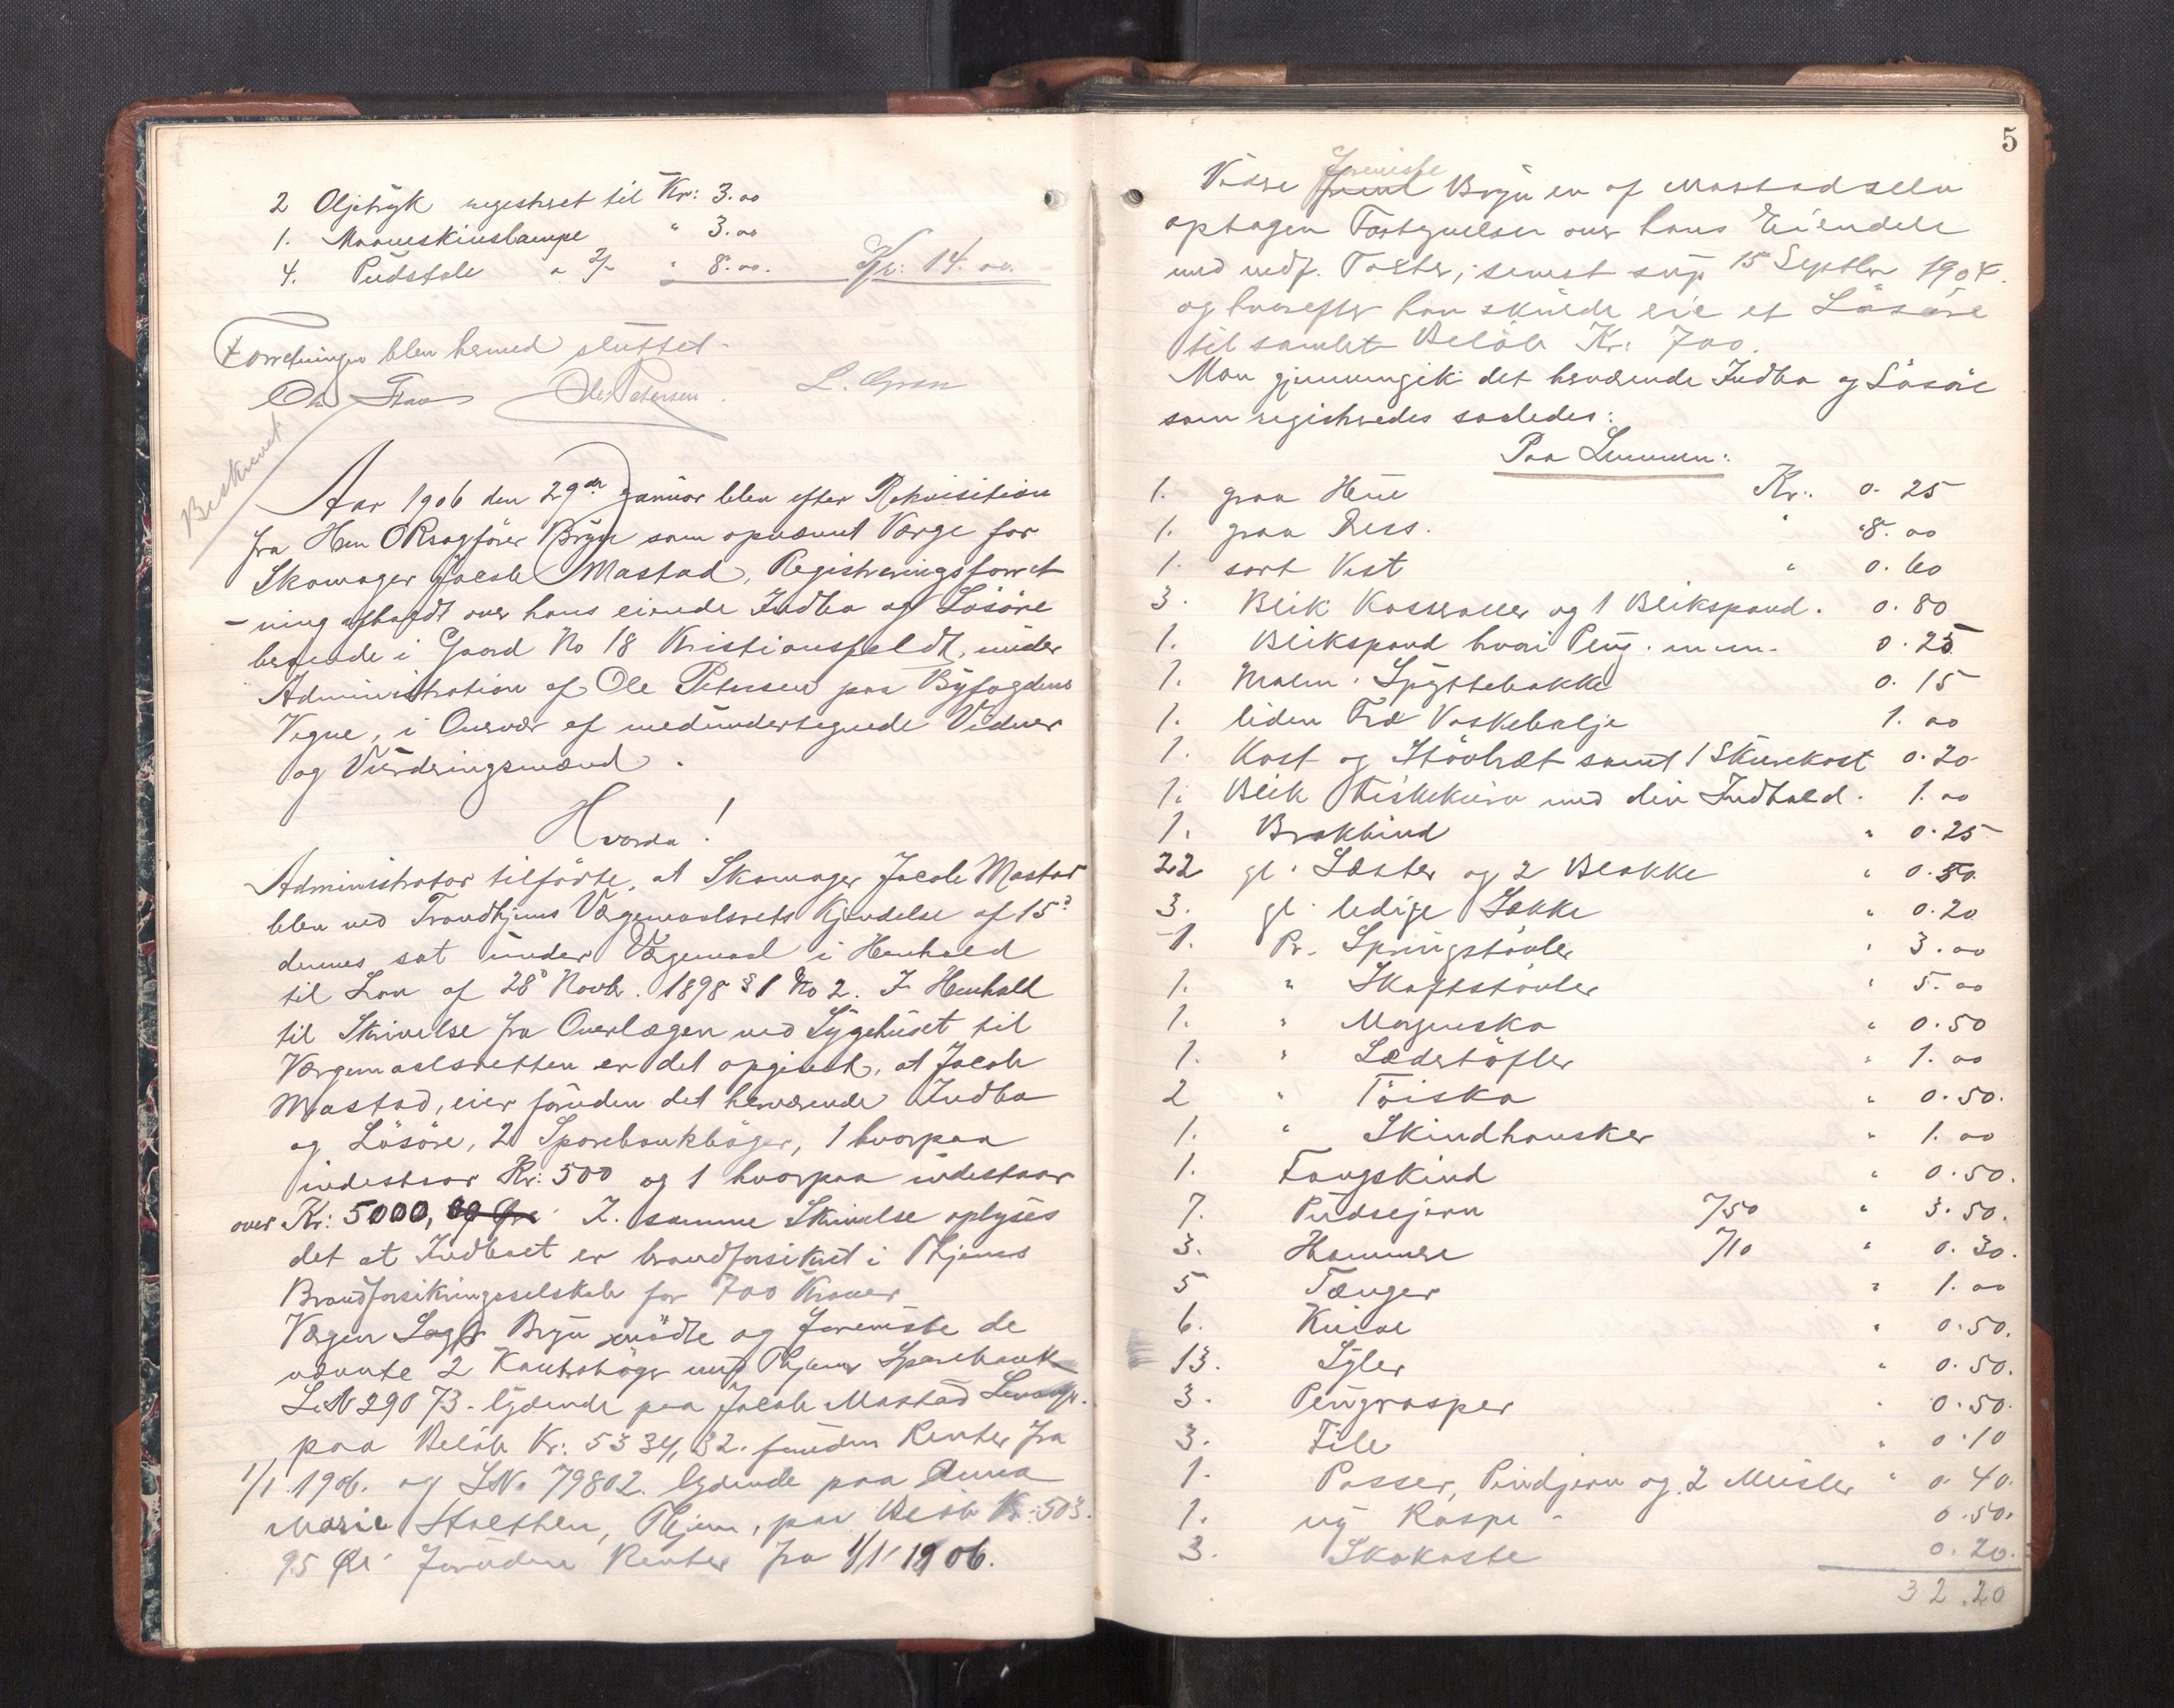 2 Oljetryk registreret til Kr: 3.00
1. Maaneskinslampe " 3.00
4. Pudstole a 2/- " 8.00. Kr: 14.00.
Forretningen blev hermed sluttet.
Ole Petersen. L. Gren
Beskrevet
Aar 1906 den 29de Januar blev efter Rekvisition
fra Herr ORsagfører Bryn som opnævnt Værge for
Skomager Jacob Mastad, Registreringsforret
-ning afholdt over hans eiende Indbo og Løsøre
beroende i Gaard No 18 Kristiansfeldt, under
Administration af Ole Petersen paa Byfogdens
Vegne, i Overvær af medundertegnede Vidner
og Vurderingsmænd.
Hvorda!
Administrator tilførte, at Skomager Jacob Mastad
blev ved Trondhjems Værgemaalsrets Kjendelse af 15de
dennes sat under Værgemaal i Henhold
til Lov af 28de Novbr. 1898 § 1 No 2. I Henhold
til Skrivelse fra Overlægen ved Sygehuset til
Værgemaalsretten er det opgivet, at Jacob
Mastad, eier foruden det herværende Indbo
og Løsøre, 2 Sparebankbøger, 1 hvorpaa
indestaar Kr: 500 og 1 hvorpaa indestaar
over Kr: 5000, I samme Skrivelse oplyses
det at Indboet er brandforsikret i Thjems
Brandforsikringsselskab for 700 Kroner
Værgen Sagf. Bryn mødte og foreviste de
nævnte 2 Kontrabøger med Thjems Sparebank
L.N 29073. lydende paa Jacob Mastad
paa Beløb Kr: 5334,32. foruden Renter fra
1/1 1906. og LNo 79802. lydende paa Anna
Marie Stolthen, Thjem, paa Beløb Kr: 503.
95 Øre foruden Renter fra 1/1 1906.
5
Videre foreviste Bryn en af Mastad selv
optagen Fortegnelse over hans Eiendele
med vedf. Takster, senest 15 Septbr 1904.
og hvorefter han skulde eie et Løsøre
til samlet Beløb Kr: 700.
Man gjennemgik det herværende Indbo og Løsøre
som registreredes saaledes:
Paa Lemmen:
1. graa Hue Kr: 0.25
1. graa Dress. " 8.00
1. sort Vest " 0.60
3. Blik Kasseroller og 1 Blikspand. 0.80
1. Blikspand hvori Pung. m.m. 0.25
1. Malm. Spyttebakke 0.15
1. liden Træ Vaskebalje 1.00
1. Kost og Støvbræt samt 1 Skurekost 0.20
1. Blik Fiskekurv med div Indhold. 1.00
1. Brokbind " 0.25
22 gl. Læster og 2 Blokke " 0.50.
3. gl. ledige Sække " 0.20
1. Pr. Springstøvler " 3.00
1. " Skaftstøvler " 5.00
1. " Morgensko " 0.50
1. " Lædertøfler " 1.00
2 " Tøisko " 0.50.
1. " Skindhansker " 1.00
1. Fangskind " 0.50.
7. Pudsejern 7/50 " 3.50.
3. Hammere 7/10 " 0.30.
5 Tænger " 1.00
6. Knive " 0.50.
13. Syler " 0.50.
3. Pengrasper " 0.50.
3. File " 0.10
1. Passer, Pindjern og 2 Meisler " 0.40.
1. ny Raspe 0.50.
3. Skokoste 0.20.
32.20